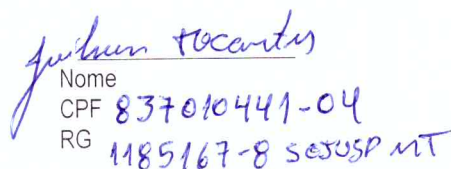 Tocantins
Nome
CPF 837010441-04
RG 1185167-8 SEJUSP MT